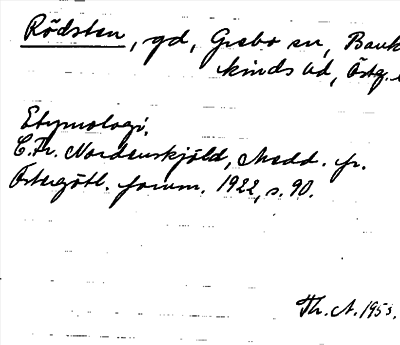 Rödsten, gd, Grebo sn, Bank
kinds hd, Östg.
Etymologi.
C. Fr. Nordenskjöld, Medd. fr.
Östergötl. fornm. 1922, s. 90.
Th. A. 1953.